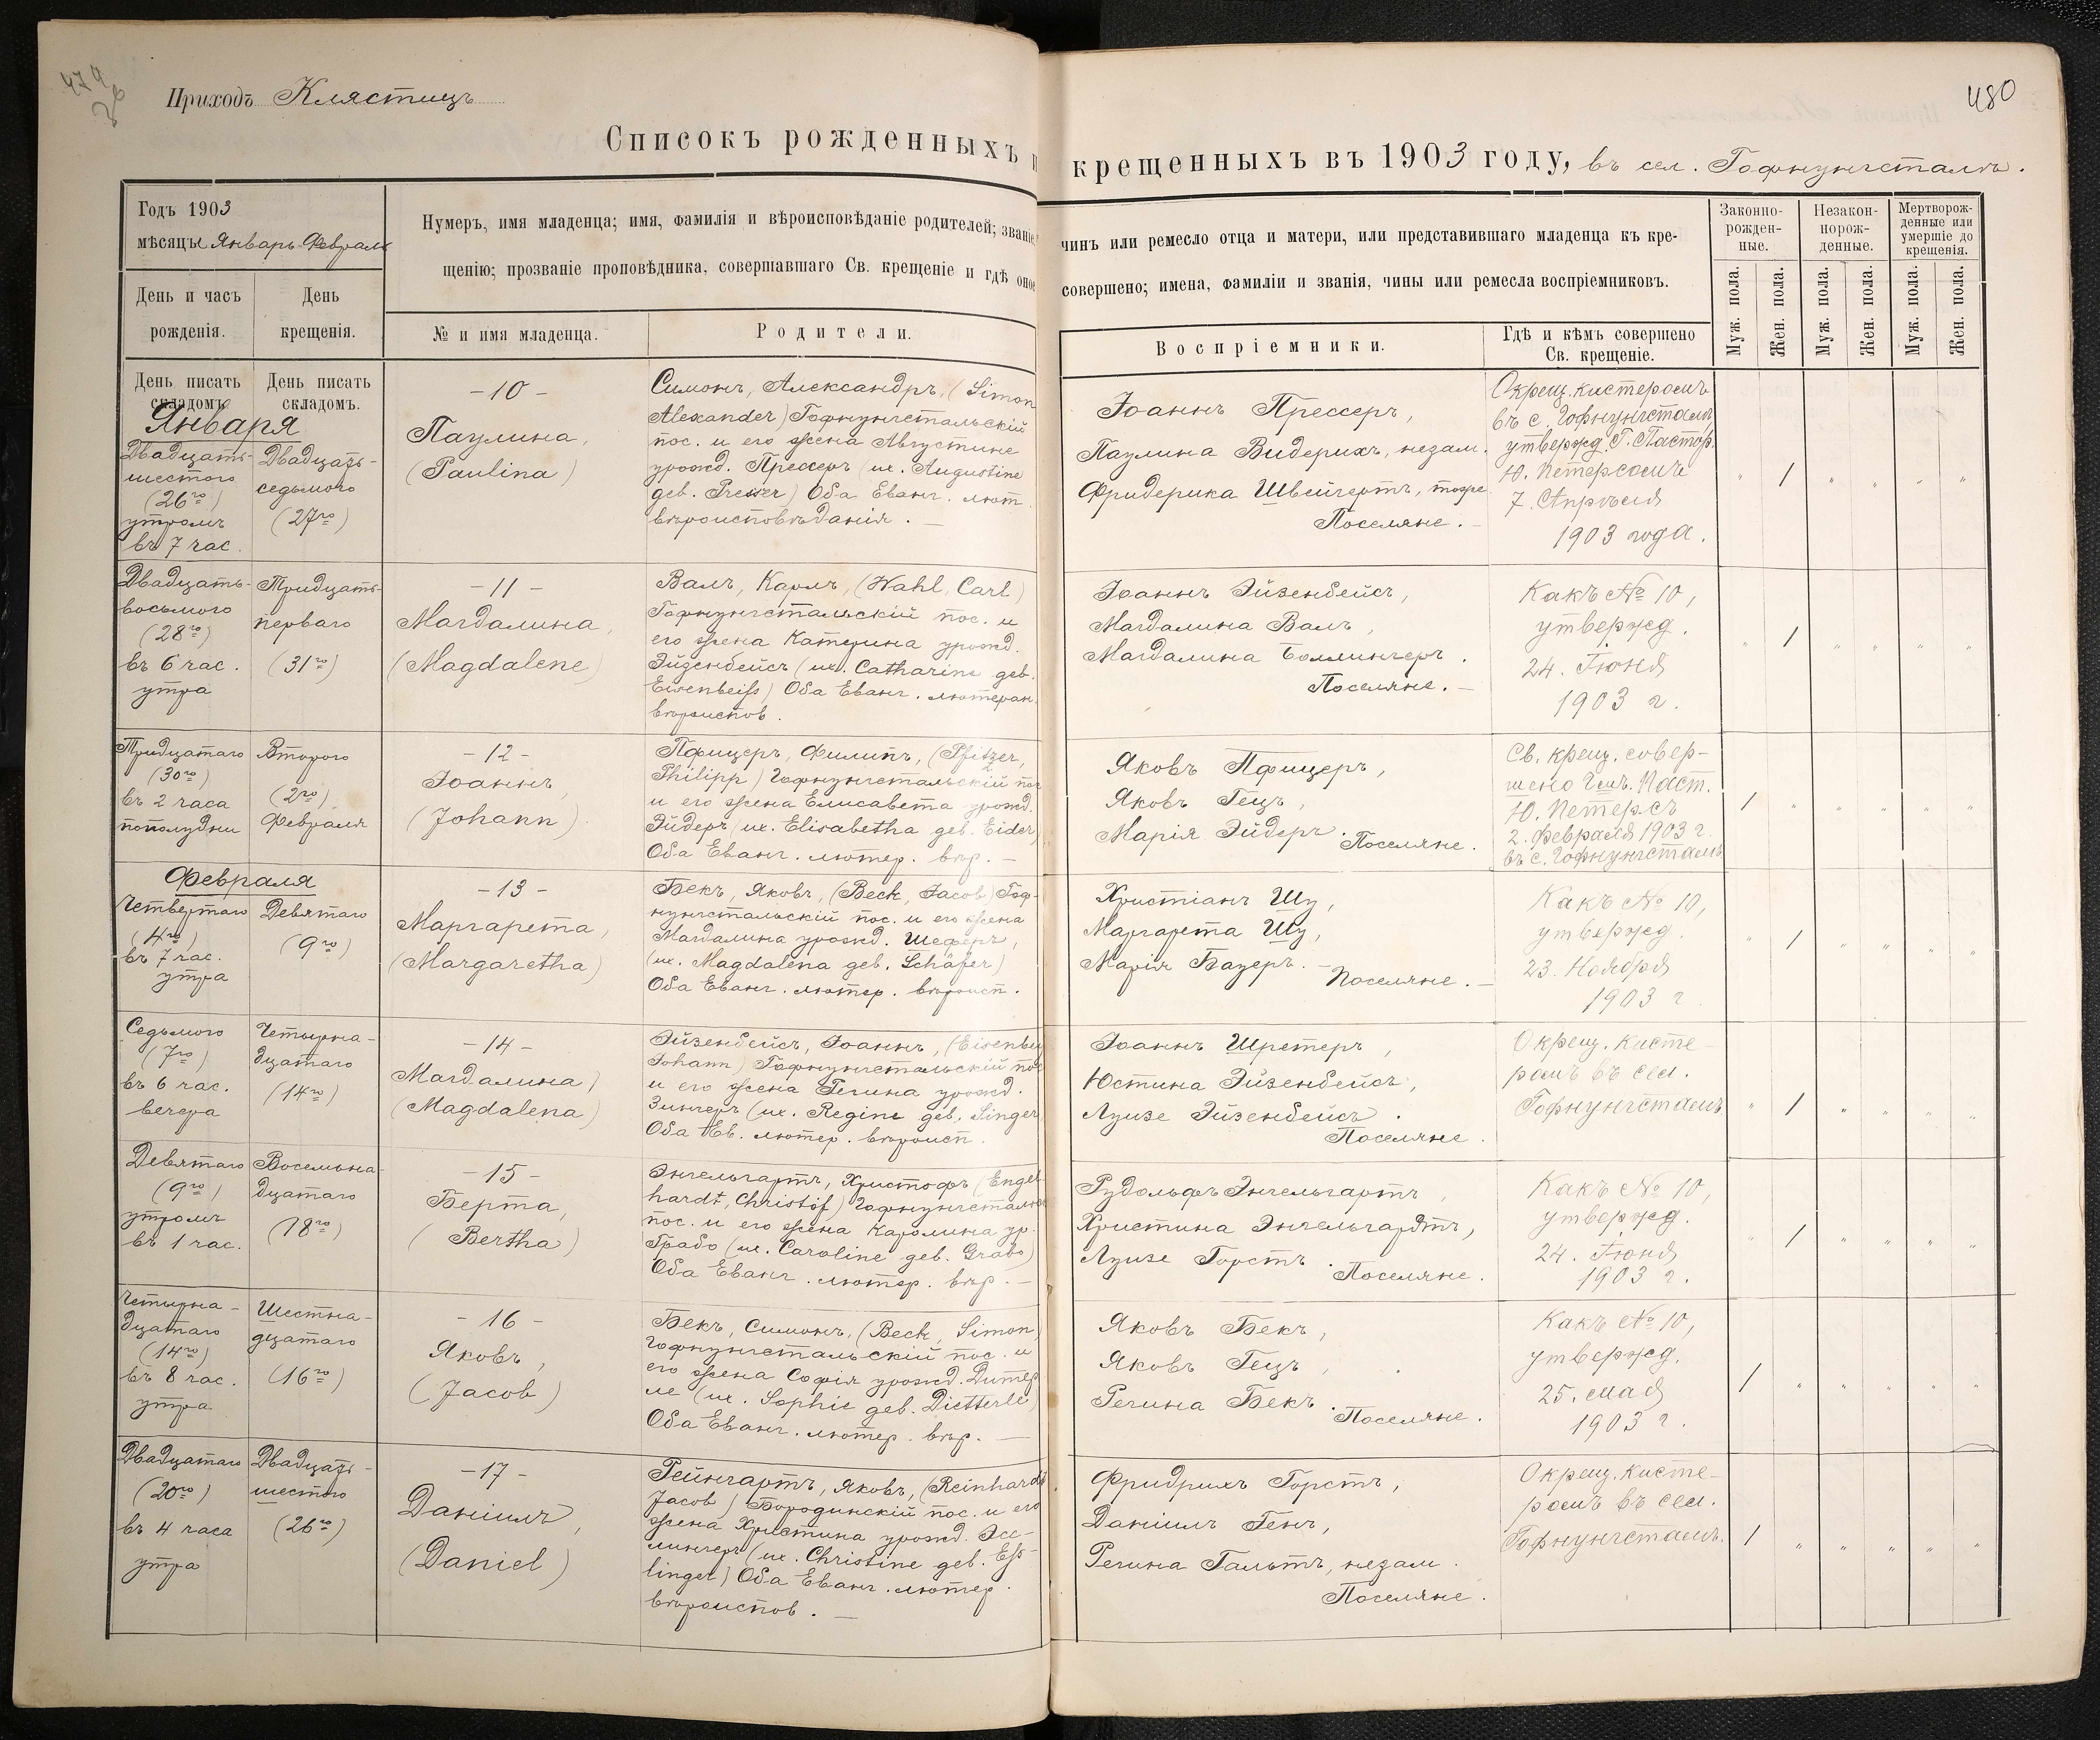 479
26
Приходъ Клястицъ
480
Списокъ рожденныхъ и крещенныхъ въ 1903 году, въ сел. Гофнунгсталь.
Годъ 1903
мѣсяцы Январь-Февраль
День и часъ
рожденія.
День
крещенія.
Нумеръ, имя младенца; имя, фамилія и вѣроисповѣданіе родителей; званіе,
щенію; прозваніе проповѣдника, совершавшаго Св. крещеніе и гдѣ оное
№ и имя младенца.
Родители.
чинъ или ремесло отца и матери, или представившаго младенца къ кре-
совершено; имена, фамиліи и званія, чины или ремесла воспріемниковъ.
Воспріемники.
Гдѣ и кѣмъ совершено
Св. крещеніе.
Законно-
рожден-
ные.
Незакон-
норож-
денные.
Мертворож-
денные или
умершіе до
крещенія.
Муж. пола.
Жен. пола.
Муж. пола.
Жен. пола.
Муж. пола.
Жен. пола.
День писать
складомъ.
День писать
складомъ.
Января
Двадцать-
шестого
(26го)
утромъ
въ 7 час.
Двадцать-
седьмого
(27го)
-10-
Паулина,
(Paulina)
Симонъ, Александръ, (Simon
Alexander) Гофнунгстальскій
пос. и его жена Августине
урожд. Прессеръ (их. Augustine
geb. Presser) Оба Еванг. лют.
вѣроисповѣданія. —
Іоаннъ Прессеръ,
Паулина Видерихъ, незам.
Фридерика Швейгертъ, тоже
Поселяне. —
Окрещ. кистеромъ
въ с. Гофнунгсталь
утвержд. Г. Пастор.
Ю. Петерсомъ
7. Апрѣля
1903 года.
" 1 " " " "
Двадцать-
восьмого
(28го)
въ 6 час.
утра
Тридцать-
перваго
(31го)
-11-
Магдалина,
(Magdalene)
Валъ, Карлъ, (Wahl, Carl)
Гофнунгстальскій пос. и
его жена Катерина урожд.
Эйзенбейсъ (их. Catharine geb.
Eisenbeiß) Оба Еванг. лютеран.
вѣроиспов.
Іоаннъ Эйзенбейсъ,
Магдалина Валъ,
Магдалина Боллингеръ.
Поселяне. —
Какъ № 10,
утвержд.
24. Іюня
1903 г.
" 1 " " " "
Тридцатаго
(30го)
въ 2 часа
пополудни
Второго
(2го)
Февраля
-12-
Іоаннъ,
(Johann)
Пфицеръ, Филипъ, (Pfitzer,
Philipp) Гофнунгстальскій пос
и его жена Елисавета урожд.
Эйдеръ (их. Elisabetha geb. Eider)
Оба Еванг. лютер. вѣр. —
Яковъ Пфицеръ,
Яковъ Гецъ,
Марія Эйдеръ. Поселяне.
Св. крещ. совер-
шено Паст.
Ю. Петерсъ
2. Февраля 1903 г.
въ с. Гофнунгсталь
1 " " " " "
Февраля
Четвертаго
(4го)
въ 7 час.
утра
Девятаго
(9го)
-13-
Маргарета,
(Margaretha)
Бекъ, Яковъ, (Beck, Jacob) Гоф-
нунгстальскій пос. и его жена
Магдалина урожд. Шеферъ,
(их. Magdalena geb. Schäfer)
Оба Еванг. лютер. вѣроисп.
Христіанъ Шу,
Маргарета Шу,
Марія Бауеръ. — Поселяне. —
Какъ № 10,
утвержд.
23. Ноября
1903 г
" 1 " " " "
Седьмого
(7го)
въ 6 час.
вечера
Четырна-
дцатаго
(14го)
-14-
Магдалина,
(Magdalena)
Эйзенбейсъ, Іоаннъ, (Eisenbeiß
Johann) Гофнунгстальскій пос
и его жена Регина урожд.
Зингеръ (их. Regine geb. Singer
Оба Ев. лютер. вѣроисп.
Іоаннъ Шретеръ,
Юстина Эйзенбейсъ,
Луизе Эйзенбейсъ.
Поселяне.
Окрещ. кисте-
ромъ въ сел.
Гофнунгсталь
" 1 " " " "
Девятаго
(9го)
утромъ
въ 1 час.
Восемьна-
дцатаго
(18го)
-15-
Берта,
(Bertha)
Энгельгартъ, Христофъ (Engel-
hardt, Christof) Гофнунгстальск
пос. и его жена Каролина ур.
Грабо (их. Caroline geb. Grabo)
Оба Еванг. лютер. вѣр. —
Рудольфъ Энгельгартъ,
Христина Энгельгардтъ,
Луизе Горстъ. Поселяне.
Какъ № 10,
утвержд.
24. Іюня
1903 г.
" 1 " " " "
Четырна-
дцатаго
(14го)
въ 8 час.
утра
Шестна-
дцатаго
(16го)
-16-
Яковъ,
(Jacob)
Бекъ, Симонъ, (Beck, Simon)
Гофнунгстальскій пос. и
его жена Софія урожд. Дитер
ле (их. Sophie geb. Dietterle)
Оба Еванг. лютер. вѣр. —
Яковъ Бекъ,
Яковъ Гецъ,
Регина Бекъ. Поселяне.
Какъ № 10,
утвержд.
25. мая
1903 г.
1 " " " " "
Двадцатаго
(20го)
въ 4 часа
утра
Двадцать-
шестого
(26го)
-17-
Даніилъ,
(Daniel)
Рейнгартъ, Яковъ, (Reinhardt
Jacob) Бородинскій пос. и его
жена Христина урожд. Эс-
лингеръ (их. Christine geb. Eß-
linger) Оба Еванг. лютер.
вѣроиспов. —
Фридрихъ Горстъ,
Даніилъ Генъ,
Регина Гальтъ, незам.
Поселяне.
Окрещ. кисте-
ромъ въ сел.
Гофнунгсталь.
1 " " " " "